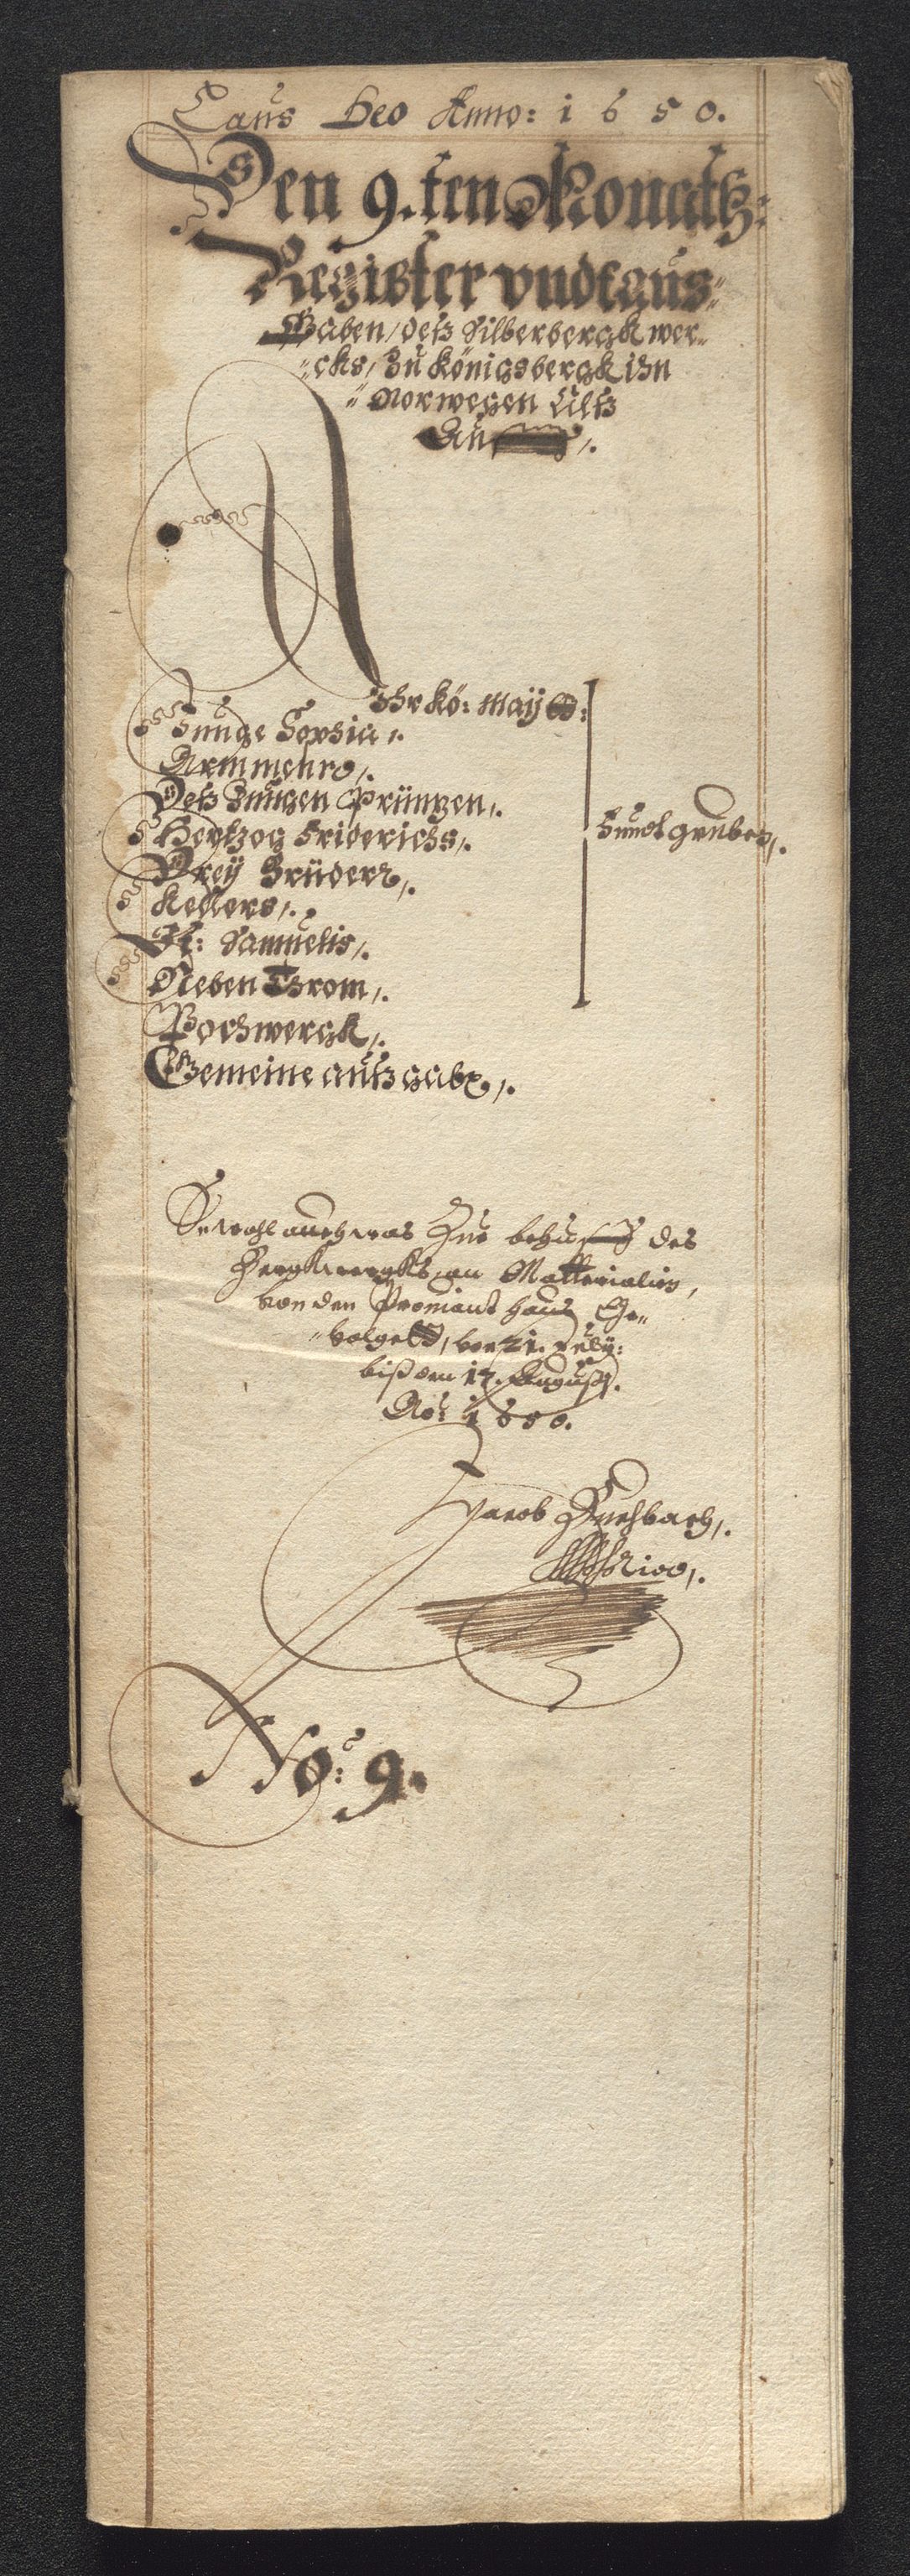 Laus Deo Anno: 1650.
Den 9.ten Monaths:
Register vndt aus„
Gaben / deß Silberbergk wer„
„cks, Zu Königsbergk ihn
„Norwegen Alß
Auf /.
Ihr Kö: Maÿtt:
Junge Sopsia /.
Armmenro /.
Deß Jungen Printzen /.
Hertzog Friderichs /.
Dreÿ Brüder /.
Kellers /.
H: Samuelis /.
Neben Throm /.
Fundtgruben /.
Bochwergk /.
Gemeine außgabe /.
Sowohl auch was Zue behueff des
Bergkwergks an Matterialien,
von den Proviant hauß Ge„
„volgett, von 21. Julÿ:
biß den 17. Augusti.
Ao: 1650.
Jacob
No: 9.